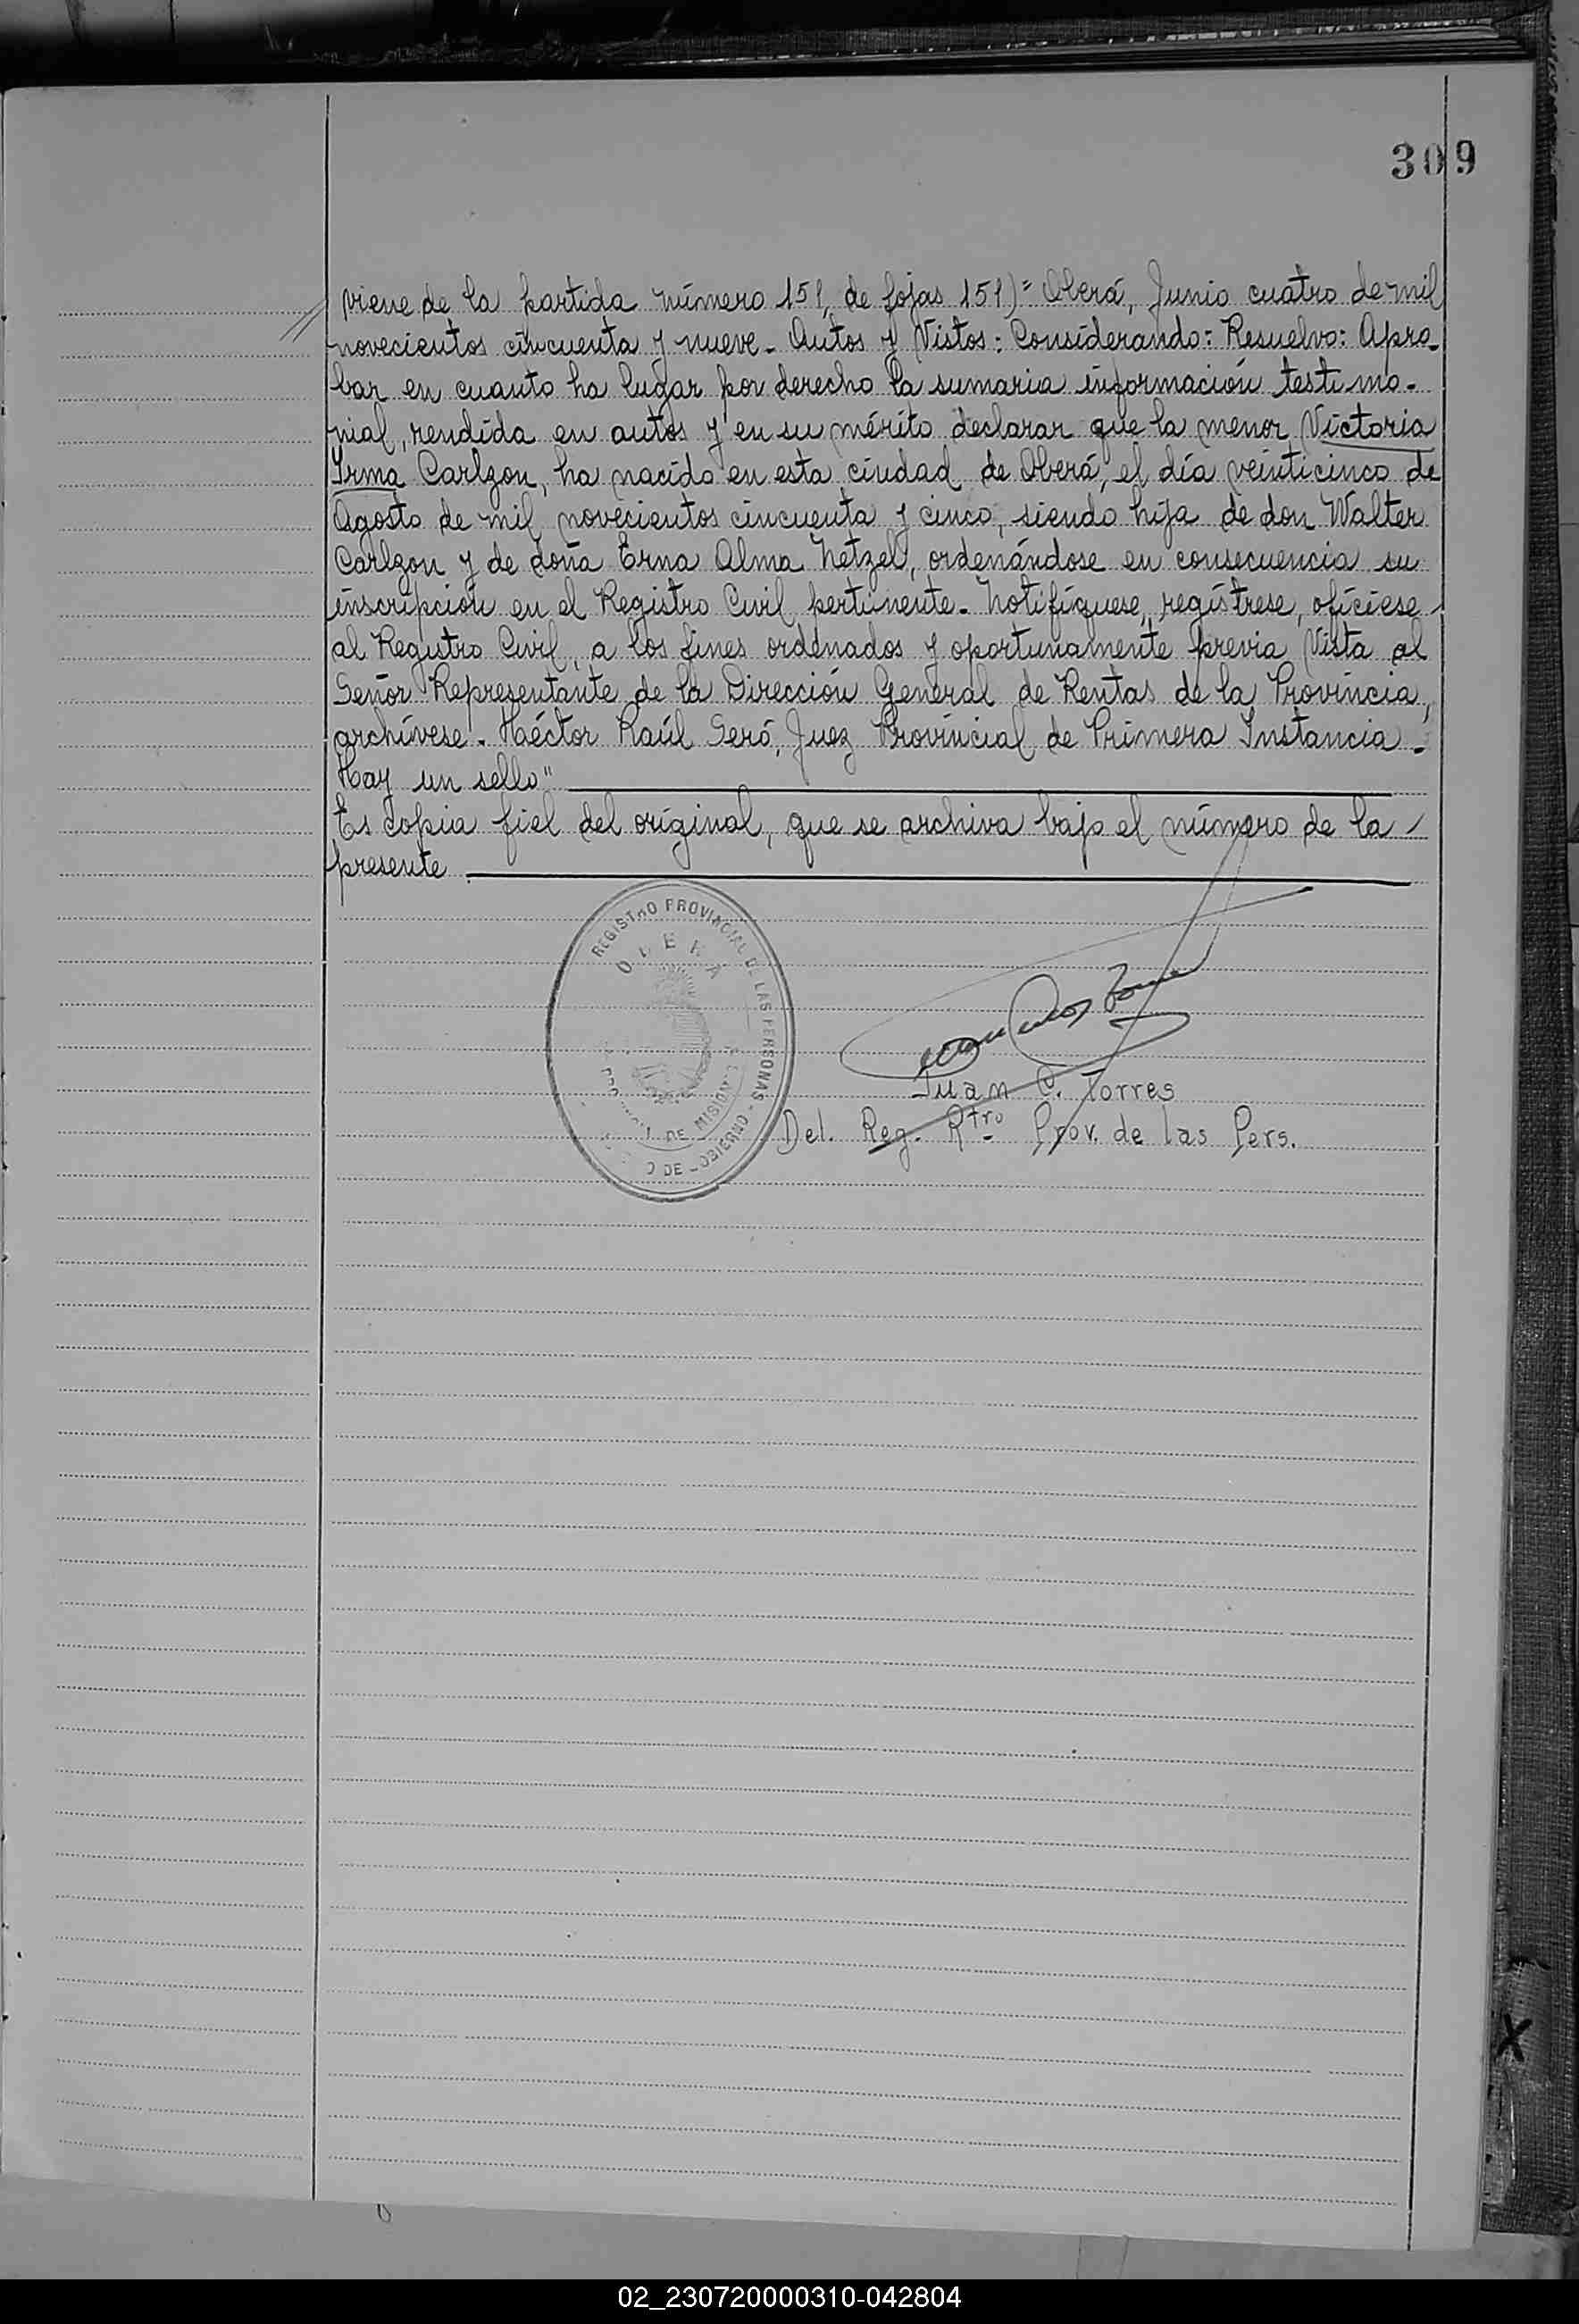 309
viene de la partida número 151, de fojas 151)= Oberá, Junio cuatro de mil
novecientos cincuenta y nueve.- Autos y Vistos: Considerando: Resuelvo: Apro-
bar en cuanto ha lugar por derecho la sumaria información testimo-
nial, rendida en autos y en su mérito declarar que la menor Victoria
Irma Carlzon, ha nacido en esta ciudad de Oberá, el día veinticinco de
Agosto de mil novecientos cincuenta y cinco, siendo hija de don Walter
Carlzon y de doña Erna Alma Netzel, ordenándose en consecuencia su
inscripción en el Registro Civil pertinente.- Notifíquese, regístrese, ofíciese
al Registro Civil, a los fines ordenados y oportunamente previa Vista al
Señor Representante de la Dirección General de Rentas de la Provincia,
archívese.- Héctor Raúl Seró, Juez Provincial de Primera Instancia.-
Hay un sello"
Es copia fiel del original, que se archiva bajo el número de la
presente
REGISTRO PROVINCIAL DE LAS PERSONAS -
OBERA
DE MISIONES
DE GOBIERNO
Juan C. Torres
Del. Reg. Rtro Prov. de las Pers.
X
02_230720000310-042804